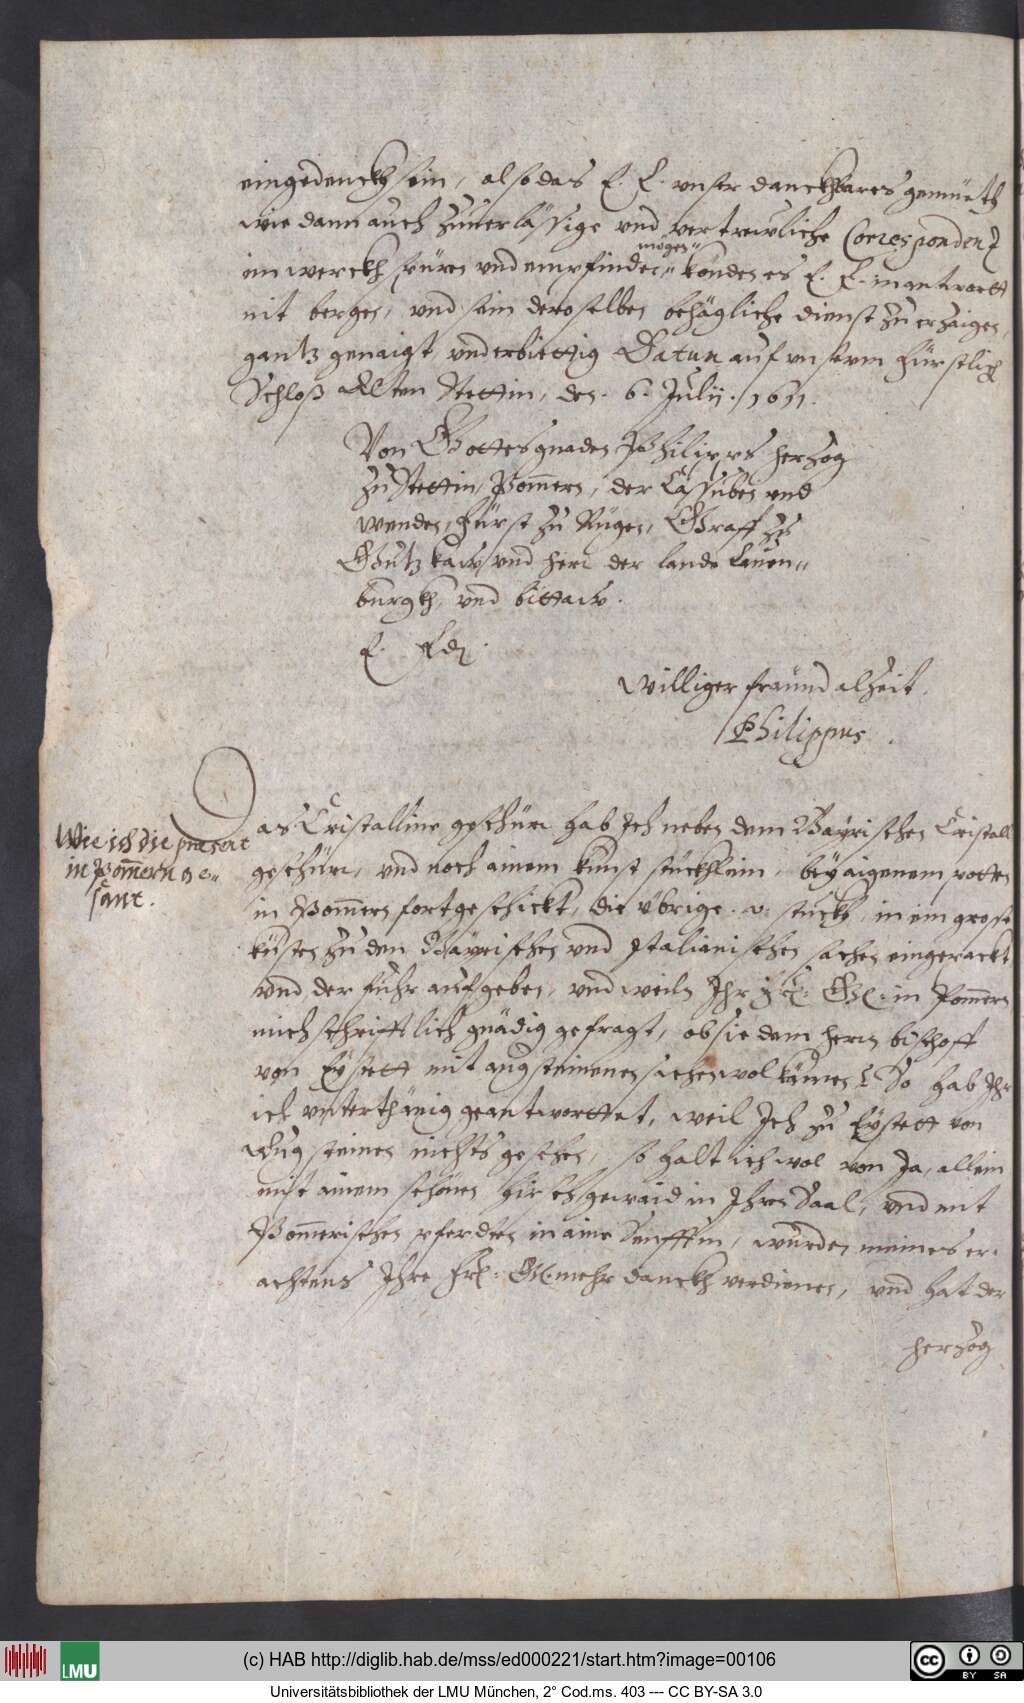 eingedenckh sein, also das E. L. vnser danckhbares gemüeth
wie dann auch zuuerlässige vnd vertrewliche Correspondenz
im werckh spüren vnd empfinden mögen, könden es E. L. in antwortt
nit bergen, vnd sein deroselben behägliche dienst zu erzaigen,
gantz genaigt vnd erbiettig Datum auf vnserm Fürstlich
Schloß Alten Stettin, den 6. Julij. 1611.
Von Gottes gnaden Philipps herzog
zu Stettin, Pom̃ern, der Cassuben vnd
wenden, Fürst zu Rügen, Graff zu
Gützkaw vnd herr der lande Lauen=
burgkh, vnd büttaw.
E. Ld.
williger fraünd alzeit.
Philippus.
Wie ich die præsent
in Pom̃ern ge=
sant.
Das Cristalline geschürr hab Ich neben dem Bayrischen Cristall
geschürr, vnd noch ainem kunst stückhlein, bey aigenem potten
in Pom̃ern fortgeschickt, die vbrige stuckh, in ein grosse
küsten zu den Bayrischen vnd Italianischen sachen eingepackt
vnd der fuhr aufgeben, vnd weiln Ihr Frl: Gl: in Pom̃ern
mich schrifftlich gnädig gefragt, ob sie dem herrn bischoff
von Eystett mit augsteinenen sachen wol kämen? So hab Ihr
ich vnterthänig geantworttet, weil Ich zu Eystett von
Augsteinen nichts gesehen, so halt ich wol von Ja, allein
mit ainem schönen hirschgewaid in Ihren Saal, vnd mit
Pom̃erischen pferdten in aine Senfften, wurden meines er=
achtens Ihre Frl: Gl: mehr danckh verdienen, vnd hat der
herzog
(c) HAB http://diglib.hab.de/mss/ed000221/start.htm?image=00106
LMU
cc BY SA
Universitätsbibliothek der LMU München, 2° Cod.ms. 403 --- CC BY-SA 3.0